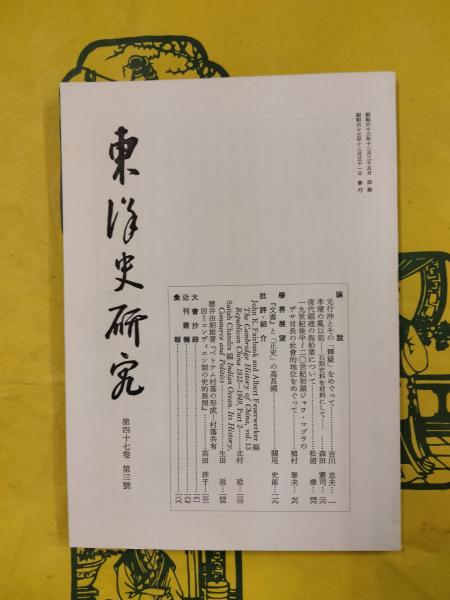 東洋史研究
第四十七卷 第三號
昭和六十三年十二月二十五日 印刷
昭和六十三年十二月三十一日 發行
論說
元行沖とその「釋疑」をめぐって……吉川 忠夫…一
李璮の亂以前——石刻史料を材料にして——……森田 憲司…
清代福建の海船業について……松浦 章…
一九世紀後半/二〇世紀初頭ジャワ・マヅラの
デサ首長の社會的地位をめぐって……植村 泰夫…
學界展望
『文書』と『正史』の高昌國……關尾 史郎…
批評・紹介
John K. Fairbank and Albert Feuerwerker 編
The Cambridge History of China, vol. 13
Republican China 1912—1949, Part 2……北村 稔…
Satish Chandra 編 Indian Ocean, Its History,
Commerce and Politics……生田 滋…
櫻井由躬雄著『ベトナム村落の形成—村落共有
田=コンディエン制の史的展開』……髙田 洋子…
大會抄錄
近刊叢欄
彙報